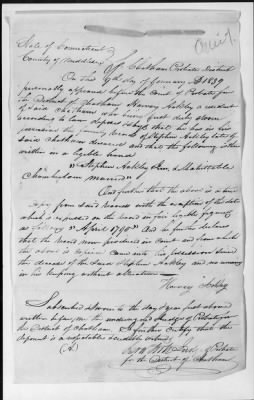 State of Connecticut
County of Middlesex } ss Chatham Probate District
On this day of January AD 1839
personally appeared before the Court of Probate for
the District of Chatham, Harvey Ackley a resident
of said Chatham who being first duly sworn
according to law deposes saith that he has in his
possession the family record of Stephen Ackley late of
said Chatham deceased and that the following is there
written in a legible hand
"Stephen Ackley and
Chamberham married"
And further that the above is a true
copy from said record with the exception of the date
which is expressed on the record in fair legible figures
as follows "April 1790" And he further declares
that the record now produced in Court and from which
the above is copied came into his possession since
the decease of the said Stephen Ackley and no
in his keeping without alteration
Harvey Ackley
Subscribed & sworn to the day & year first above
written before me the undersigned Judge of Probate for
the District of Chatham. I further certify that the
deponent is a respectable credible
Judge of Probate
for the District of Chatham